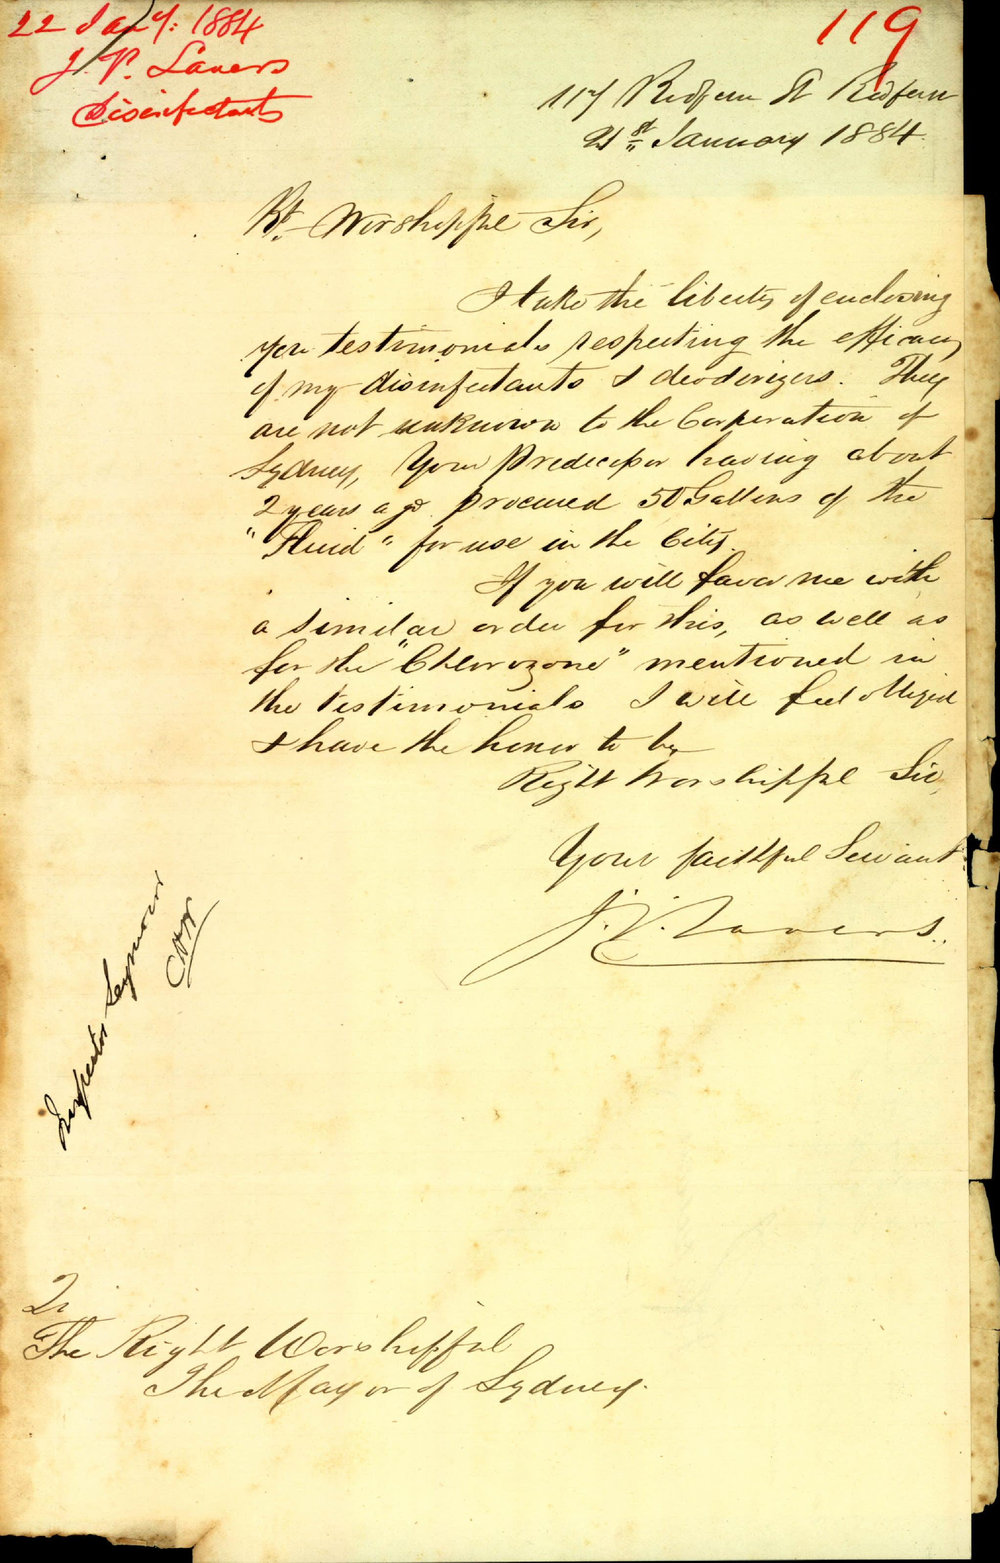 22 Jany: 1884
J. P. Lavers
Disinfectants
119
117 Redfern St Redfern
21st January 1884
Rt. Worshippl Sir,
I take the liberty of enclosing
you testimonials respecting the efficacy
of my disinfectants & deoderizers. They
are not unknown to the Corporation of
Sydney, Your Predecessor having about
2 years ago procured 50 Gallons of the
"Fluid" for use in the City.
If you will favor me with
a similar order for this, as well as
for the "Chlorozone" mentioned in
the testimonials I will feel obliged
& have the honor to be
Right Worshippl Sir,
Your faithful Servant
J. P. Lavers.
Inspector Seymour
To
The Right Worshipful
The Mayor of Sydney.